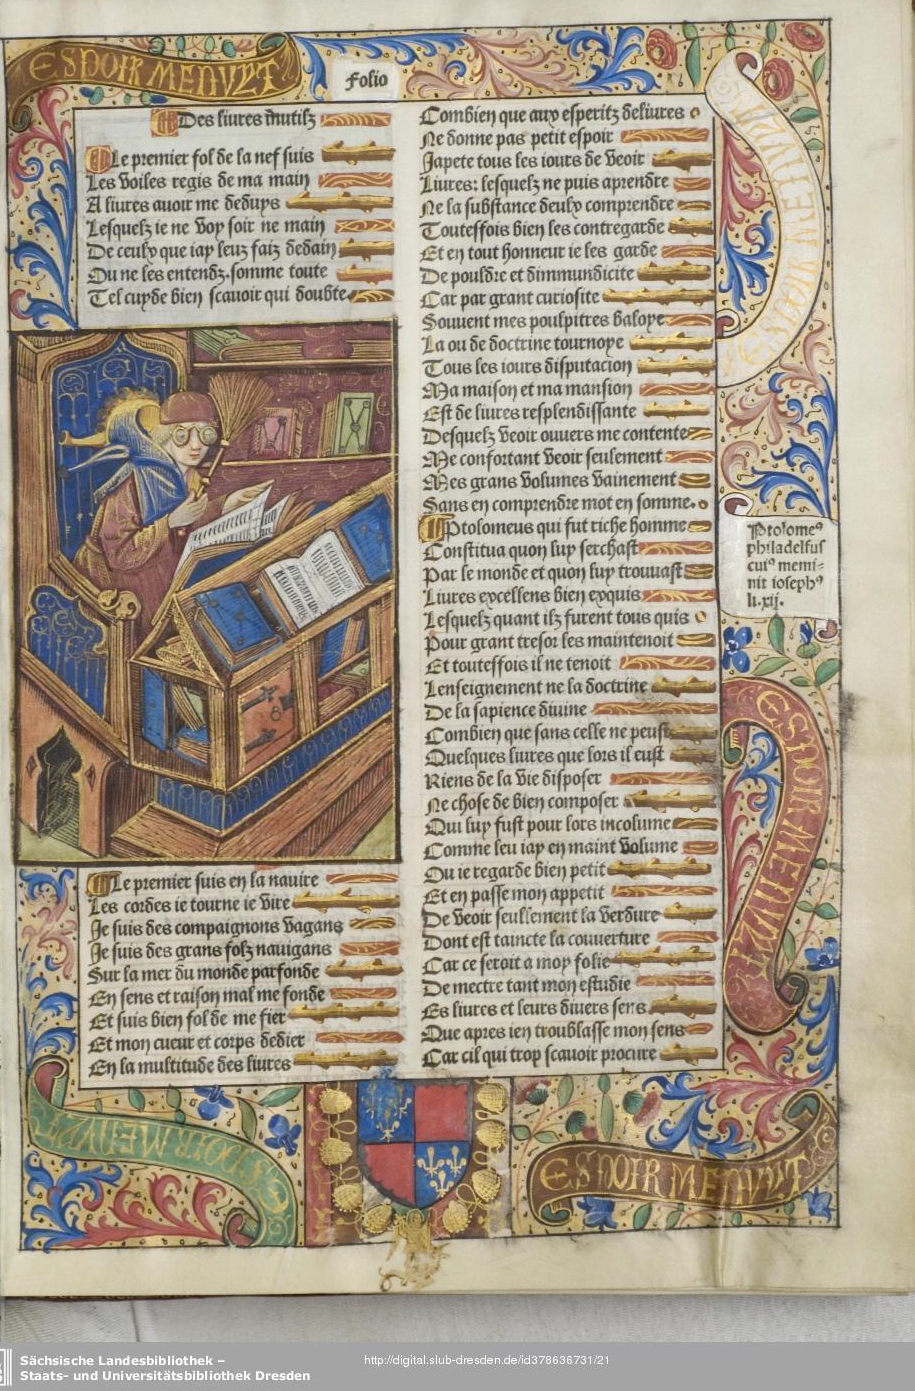 ESPOIR MENUYT
Folio
Des liures inutilz
Le premier fol de la nef suis
Les voiles regis de ma main
A liures auoir me deduys
Lesquelz ie ne voy soir ne main
De ceulx que iay leuz faiz dedain
Ou ne les entendz, somme toute
Tel cuyde bien scauoir qui doubte.
Le premier suis en la nauire
Les cordes ie tourne ie vire
Je suis des compaignons vagans
Je suis des grans folz nauigans
Sur la mer du monde parfonde
En sens et raison mal me fonde
Et suis bien fol de me fier
Et mon cueur et corps dedier
En la multitude des liures
Combien que aux esperitz deliures
Ne donne pas petit espoir
Japete tous les iours de veoir
Liures: lesquelz ne puis aprendre
Ne la substance deulx comprendre
Toutesfois bien les contregarde
Et en tout honneur ie les garde
De pouldre et dimmundicite
Car par grant curiosite
Souuent mes poulpitres baloye
La ou de doctrine tournoye
Tous les iours disputacion
Ma maison et ma mansion
Est de liures resplendissante
Desquelz veoir ouuers me contente
Me confortant veoir seulement
Mes grans volumes vainement
Sans en comprendre mot en somme.
Ptolomeus qui fut riche homme
Constitua quon luy serchast
Par le monde et quon luy trouuast
Liures excellens bien exquis
Lesquelz quant ilz furent tous quis
Pour grant tresor les maintenoit
Et toutesfois il ne tenoit
Lenseignement ne la doctrine
De la sapience diuine
Combien que sans celle ne peust
Quelques liures que lors il eust
Riens de la vie disposer
Ne chose de bien composer
Qui luy fust pour lors incolume
Comme leu iay en maint volume
Ou ie regarde bien petit
Et en passe mon appetit
De veoir seullement la verdure
Dont est taincte la couuerture
Car ce seroit a moy folie
De mectre tant mon estudie
Es liures et leurs diuers sens
Que apres ien troublasse mon sens
Car cil qui trop scauoir procure
Ptolomeꝰ
philadelfus
cuiꝰ memi-
nit iosephꝰ
li. xij.
ESPOIR MENUYT
ESPOIR MENUYT
ESPOIR MENUYT
ESPOIR MENUYT
Sächsische Landesbibliothek –
Staats- und Universitätsbibliothek Dresden
http://digital.slub-dresden.de/id378636731/21